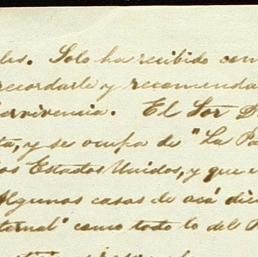 les. Solo ha recibido con
recordarle y recomenda
ervivencia. El Sor D
ta, y se ocupa de "La Pa
los Estados Unidos, y que e
Algunas casas de acá dic
ternal" como todo lo del P